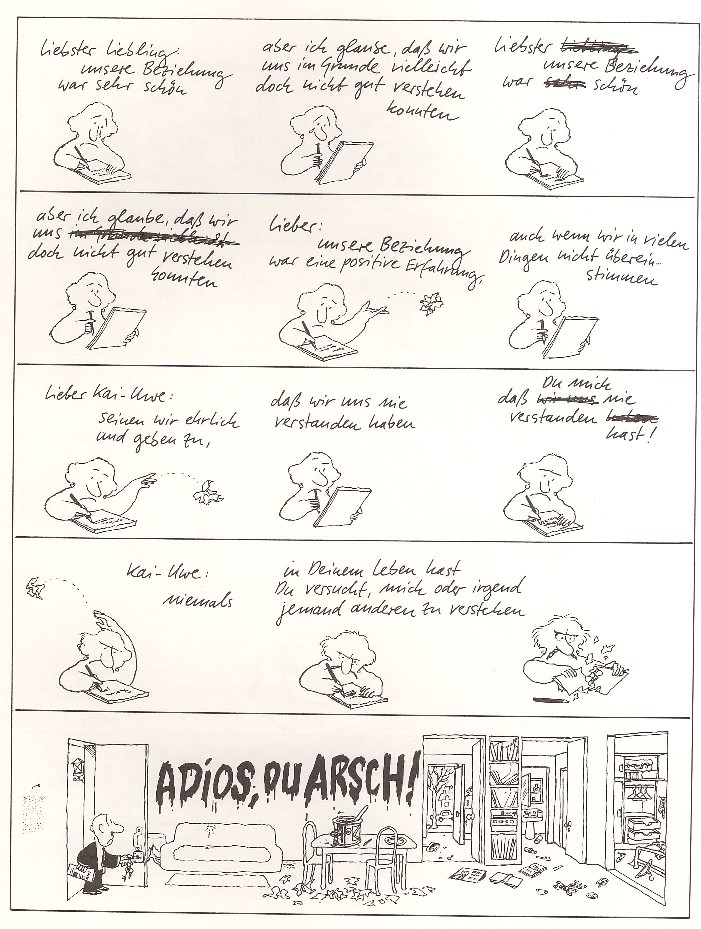 liebster Liebling:
unsere Beziehung
war sehr schön
aber ich glaube, daß wir
uns im Grunde vielleicht
doch nicht gut verstehen
konnten
liebster Liebling:
unsere Beziehung
war sehr schön
aber ich glaube, daß wir
uns im Grunde vielleicht
doch nicht gut verstehen
konnten
lieber:
unsere Beziehung
war eine positive Erfahrung,
auch wenn wir in vielen
Dingen nicht überein-
stimmen
lieber Kai-Uwe:
seinen wir ehrlich
und geben zu,
daß wir uns nie
verstanden haben
Du mich
daß wir uns nie
verstanden haben
hast!
Kai-Uwe:
niemals
in Deinem Leben hast
Du versucht, mich oder irgend
jemand anderen zu verstehen
ADIOS, DU ARSCH!